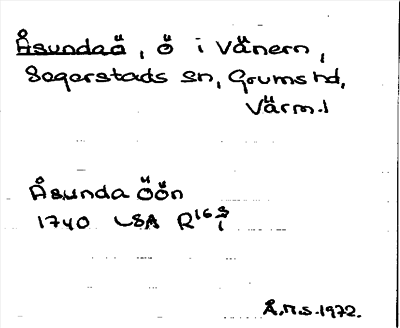 Åsundaö, ö i Vänern,
Segerstads sn, Grums hd,
Värm.l
Åsunda Öön
1740 LSA R16 8/1
Å.M.S. 1972.